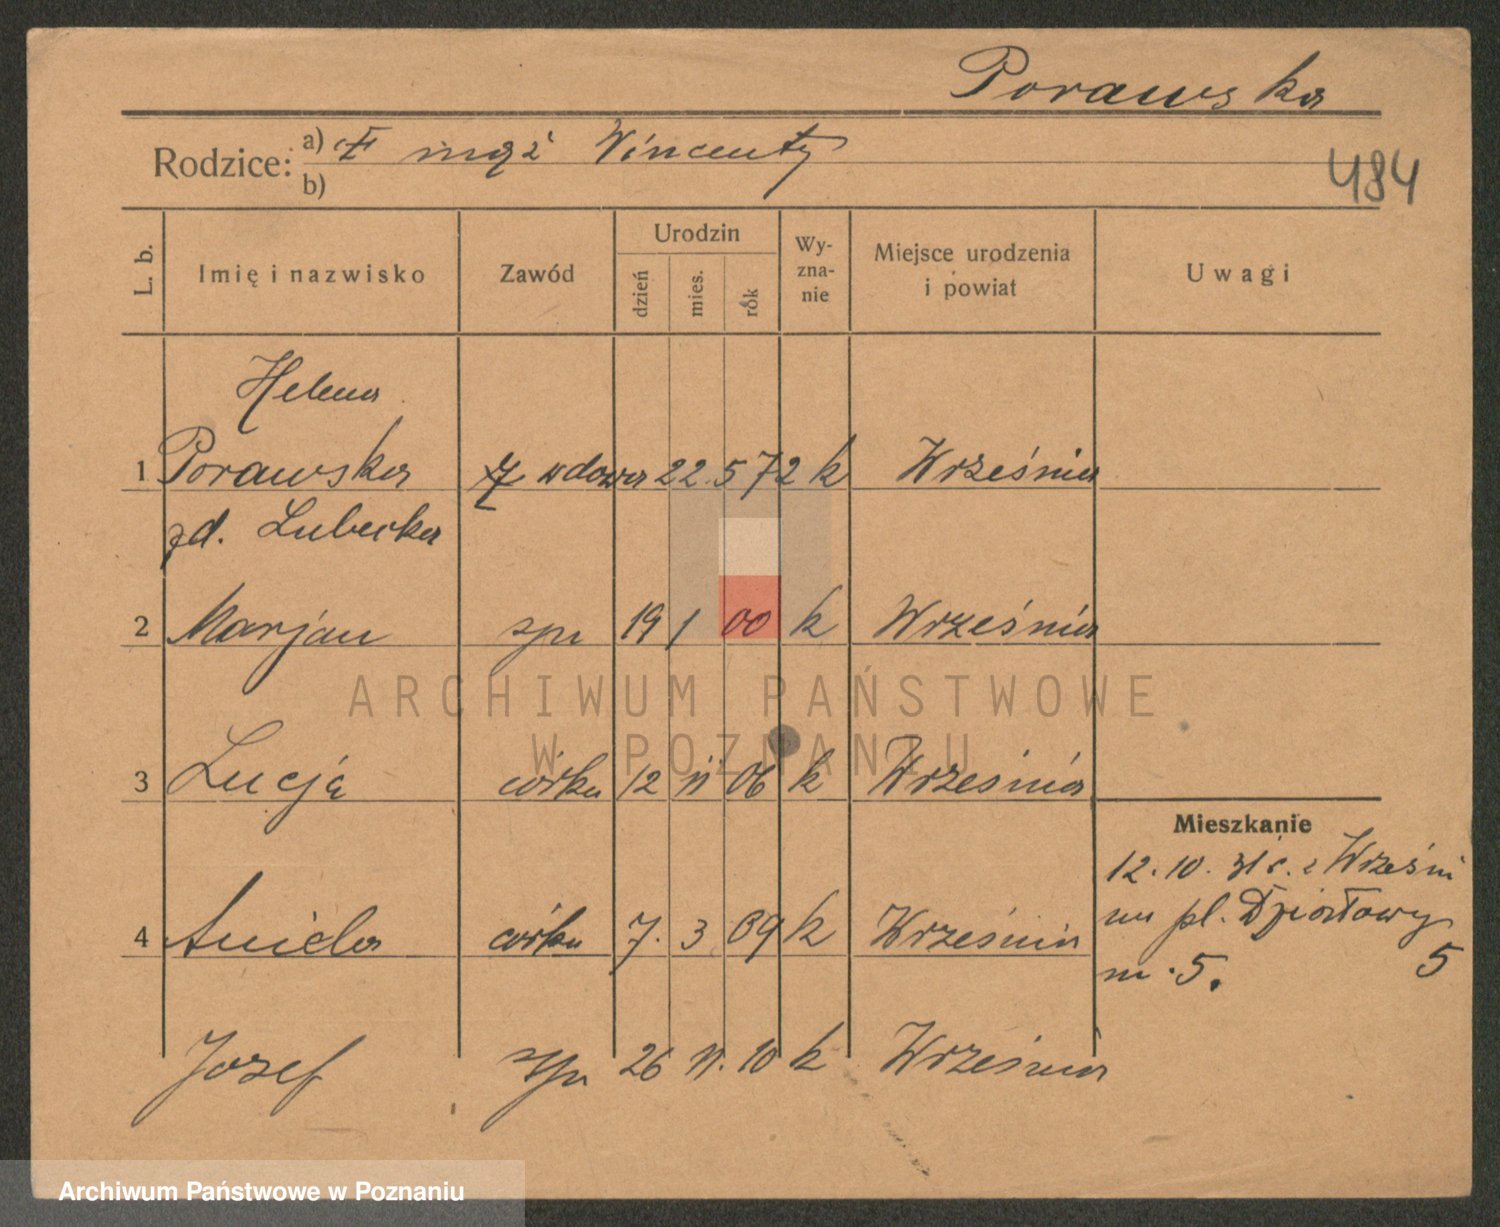 Porawska
Rodzice: a) mąż Wincenty
b)
484
L. b. Imię i nazwisko Zawód Urodzin dzień mies. rok Wy-zna-nie Miejsce urodzenia i powiat Uwagi
Helena
1 Porawska wdowa 22 5 72 k Września
zd. Lubecka
2 Marjan syn 19 1 00 k Września
ARCHIWUM PAŃSTWOWE
W POZNANIU
3 Łucja córka 12 11 06 k Września
Mieszkanie
12.10.31 r. z Wrześni
4 córka 7. 3 09 k Września
na pl. Działowy
m. 5. 5
Jozef syn 26 11. 10 k Września
Archiwum Państwowe w Poznaniu